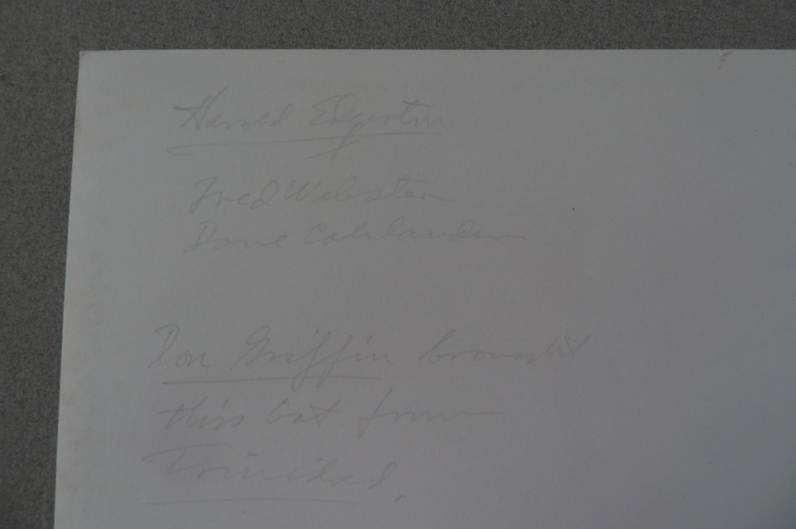 Harold Edgerton
Fred Webster
Dave Cahlander
Don Griffin brought
this bat from
Trinidad.